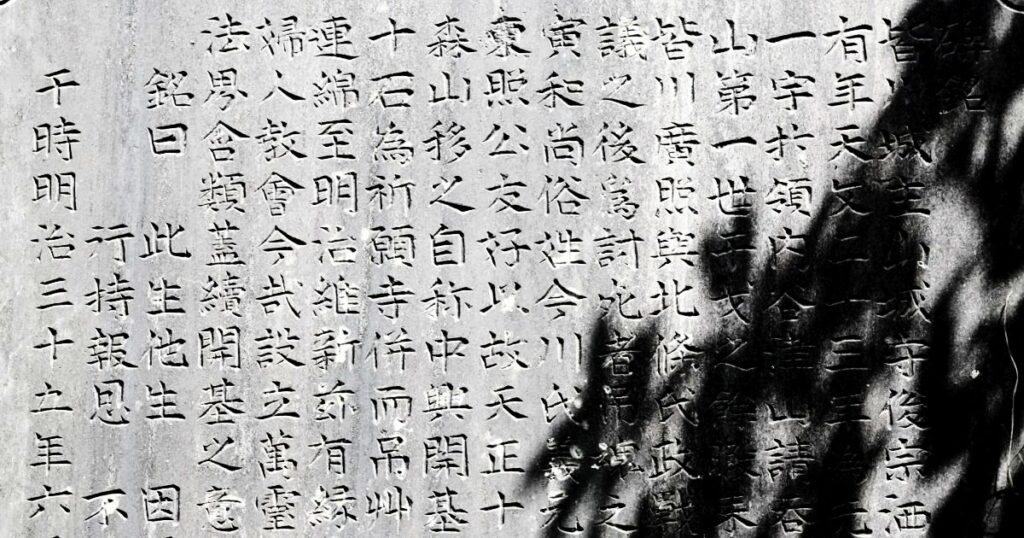 碑銘
皆川城主山城守俊宗洒
有年天文二十三
一字於領内 山請
山第一世干戈之
皆川廣照與北條氏政戰
議之後為討死者吊 之
寅和尚俗姓今川氏義元
東照公友好以故天正十
森山移之自称中興開基
十石為祈願寺併而吊艸
連綿至明治維新茲有縁
婦人教會今哉設立萬霊
法界含類蓋續開基之意
銘曰 此生他生 因
行持報恩 不
干時明治三十五年六